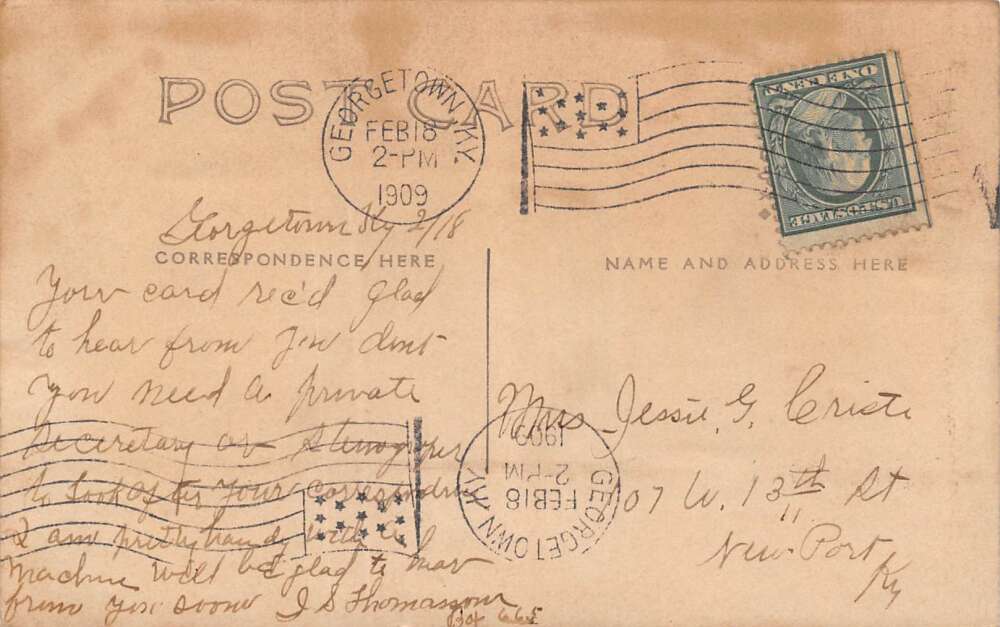 POST CARD
GEORGETOWN, KY.
FEB 18
2-PM
1909
ONE CENT
U.S. POSTAGE
Georgetown Ky 2/18
CORRESPONDENCE HERE
NAME AND ADDRESS HERE
Your card rec'd glad
to hear from you dont
you need a private
secretary or
to look after your
I am pretty handy with a
machine will be glad to hear
from you soon J S Thomasson
Box 665
Mrs Jessie G. Criste
07 W. 13th St
New-Port
Ky
GEORGETOWN, KY.
FEB 18
2-PM
1909